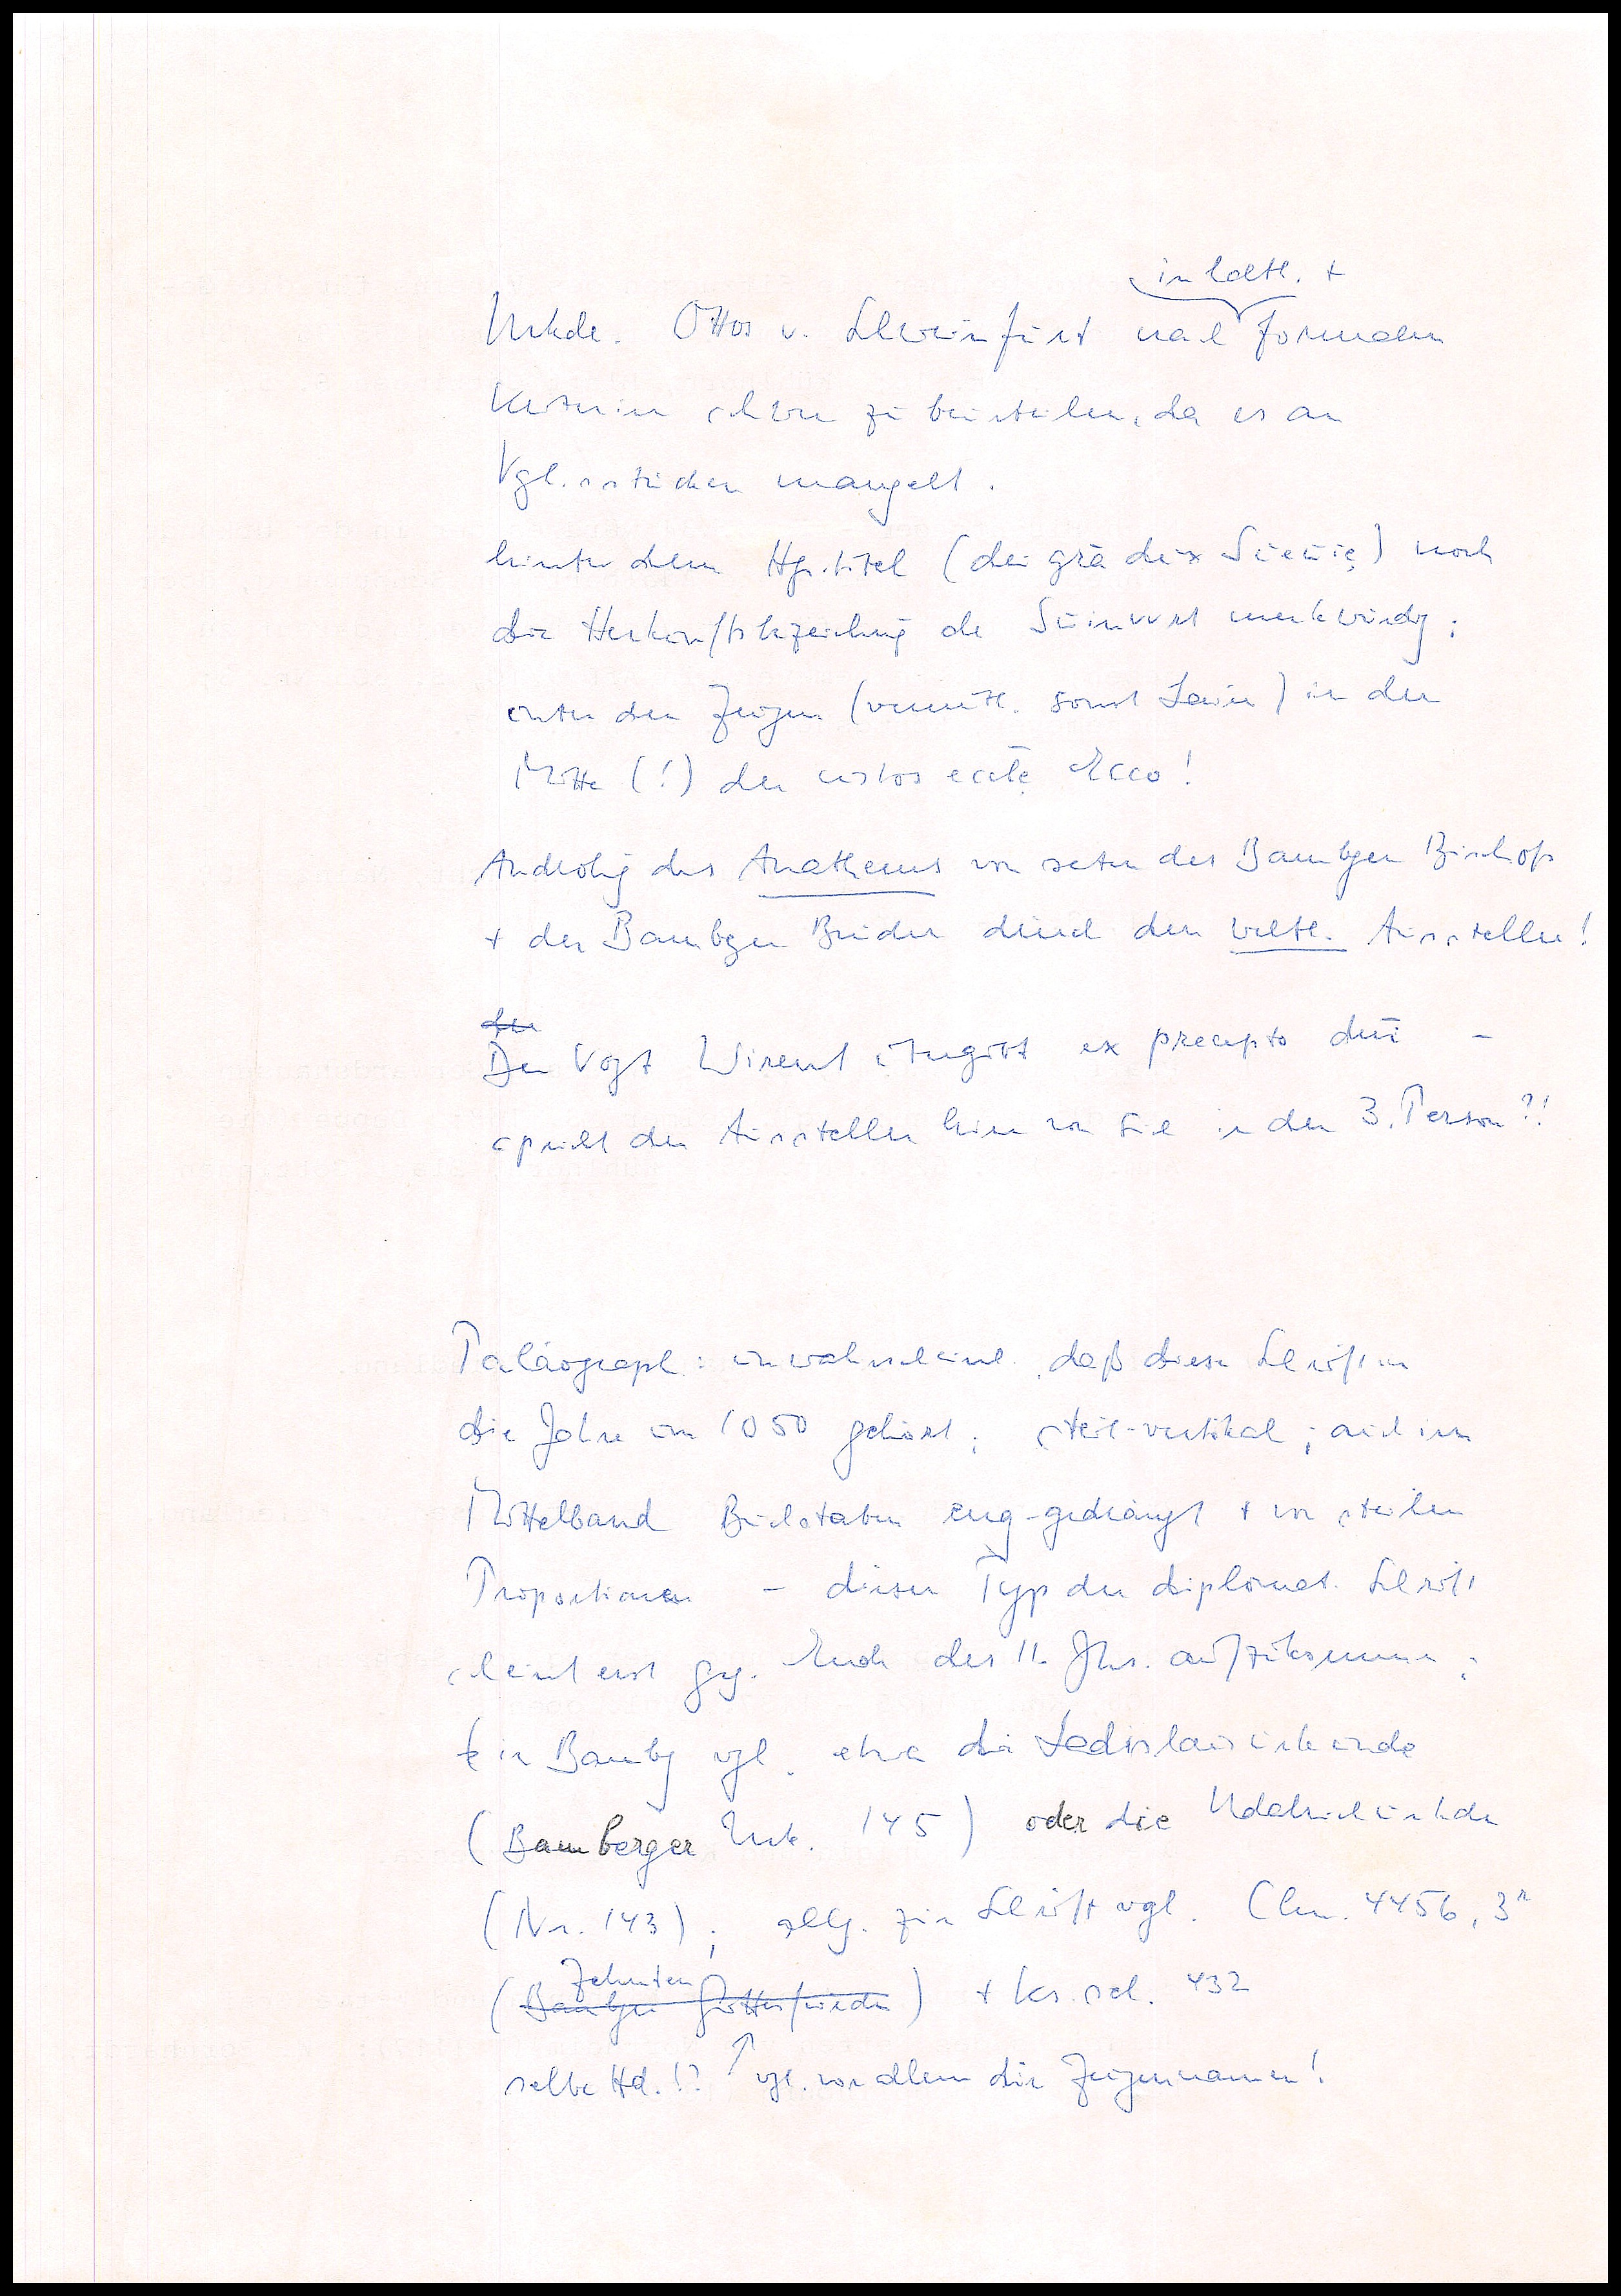 inhaltl. +
Urkde. Ottos v. Schweinfurt nach formalen
Kriterien schwer zu beurteilen, da es an
Vgl.sstücken mangelt.
hinter dem Hgs.titel (dei gr̄a dux Sueuię) noch
die Herkunftsbezeichnung de Suinvurt merkwürdig;
unter den Zeugen (vermutl. sonst Laien) in der
Mitte (!) der custos eccl̄ę Ecco!
Androhg des Anathems von seiten des Bambger Bischofs
+ der Bambger Brüder durch den weltl. Aussteller!
der
Der Vogt Wirent übergibt ex precepto dn̄i –
spricht der Aussteller hier von sich in der 3. Person?!
Paläograph.: unwahrscheinl., daß diese Schrift in
die Jahre um 1050 gehört; steil-vertikal; auch im
Mittelband Buchstaben eng-gedrängt + von steilen
Proportionen – dieser Typ der diplomat. Schrift
scheint erst geg. Ende des 11. Jhs. aufzukommen;
für Bambg vgl. etwa die Ladislausurkunde
(Bamberger Urk. 145) oder die Udalrichurkde
(Nr. 143); allg. zur Schrift vgl. Clm. 4456, 3r
Zehnten
(Bambger Gottesfrieden) + Ks.sel. 432
selbe Hd.!? ↑ vgl. vor allem die Zeugennamen!